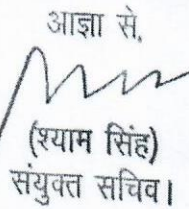 आज्ञा से,
(श्याम सिंह)
संयुक्त सचिव।